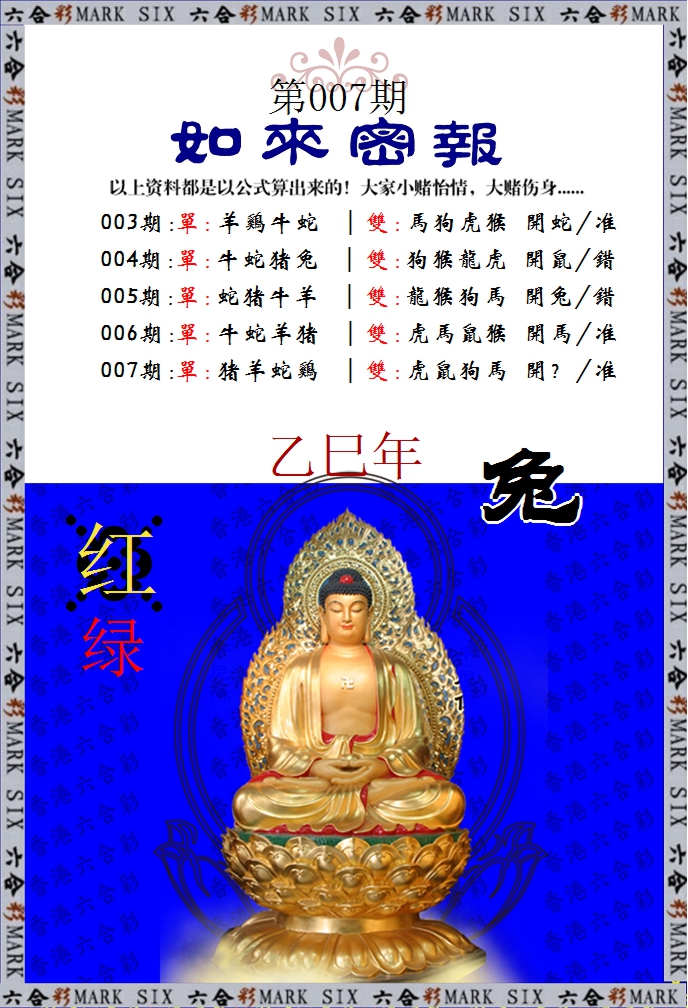 六合彩MARK SIX 六合彩MARK SIX 六合彩MARK SIX 六合彩MARK
第007期
如來密報
以上资料都是以公式算出来的！大家小赌怡情，大赌伤身......
003期:單:羊鷄牛蛇 | 雙:馬狗虎猴 開蛇/准
004期:單:牛蛇猪兔 | 雙:狗猴龍虎 開鼠/錯
005期:單:蛇猪牛羊 | 雙:龍猴狗馬 開兔/錯
006期:單:牛蛇羊猪 | 雙:虎馬鼠猴 開馬/准
007期:單:猪羊蛇鷄 | 雙:虎鼠狗馬 開?/准
乙巳年
兔
红
绿
香港六合彩
卍
六合彩MARK SIX 六合彩MARK SIX 六合彩MARK SIX 六合彩MARK